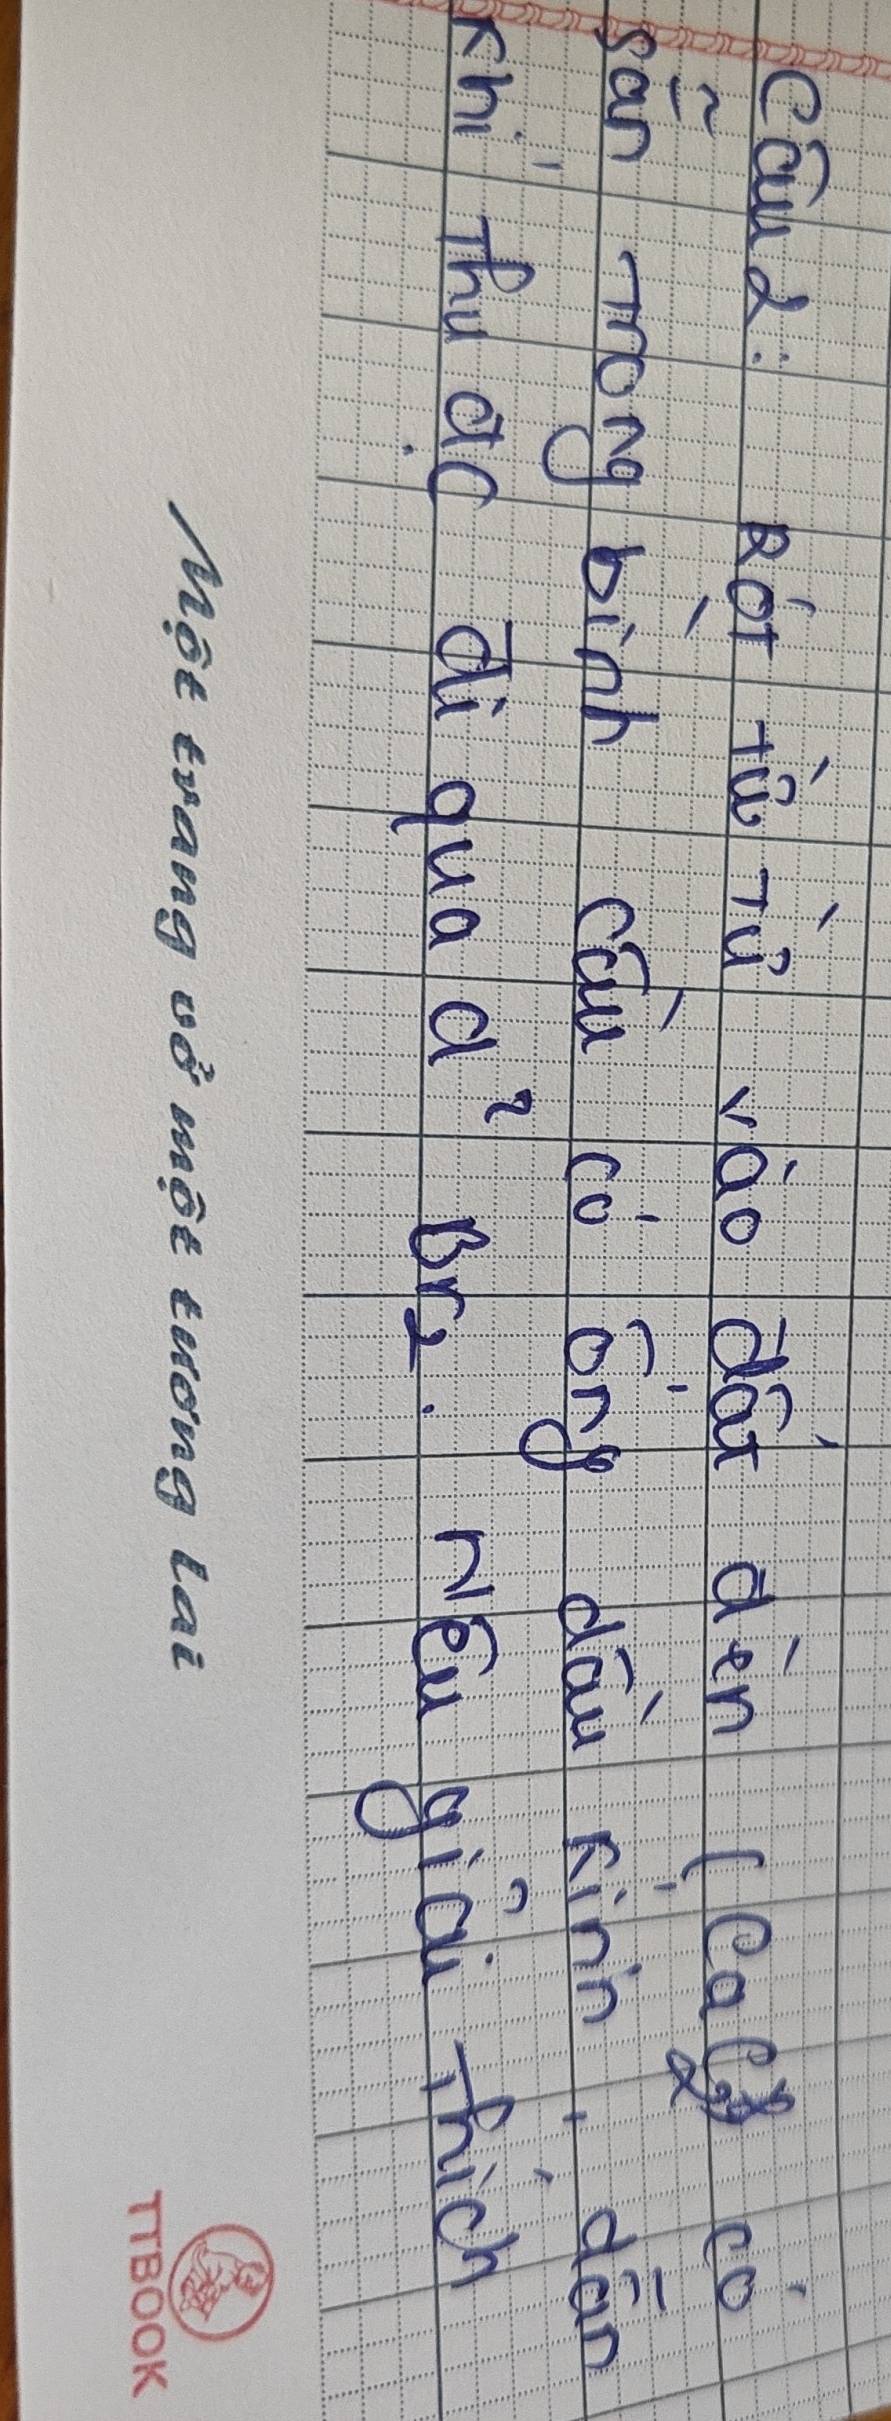 Câu 2: Rót từ từ vào đất đèn (CaC2) có
sẵn trong bình cầu có ống dẫn kính, dẫn
khí thu đc đi qua d² Br2. Nêu giải thích
Một trang vở một tương lai
TTBOOK